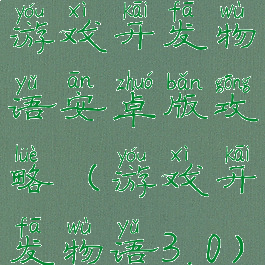 yóu xì kāi fā wù
游戏开发物
yǔ ān zhuó bǎn gōng
语安卓版攻
lüè yóu xì kāi
略（游戏开
fā wù yǔ
发物语3.0）